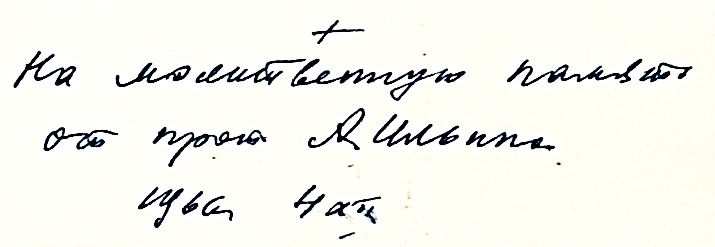 +
На молитвенную память
от прот А. Ильина